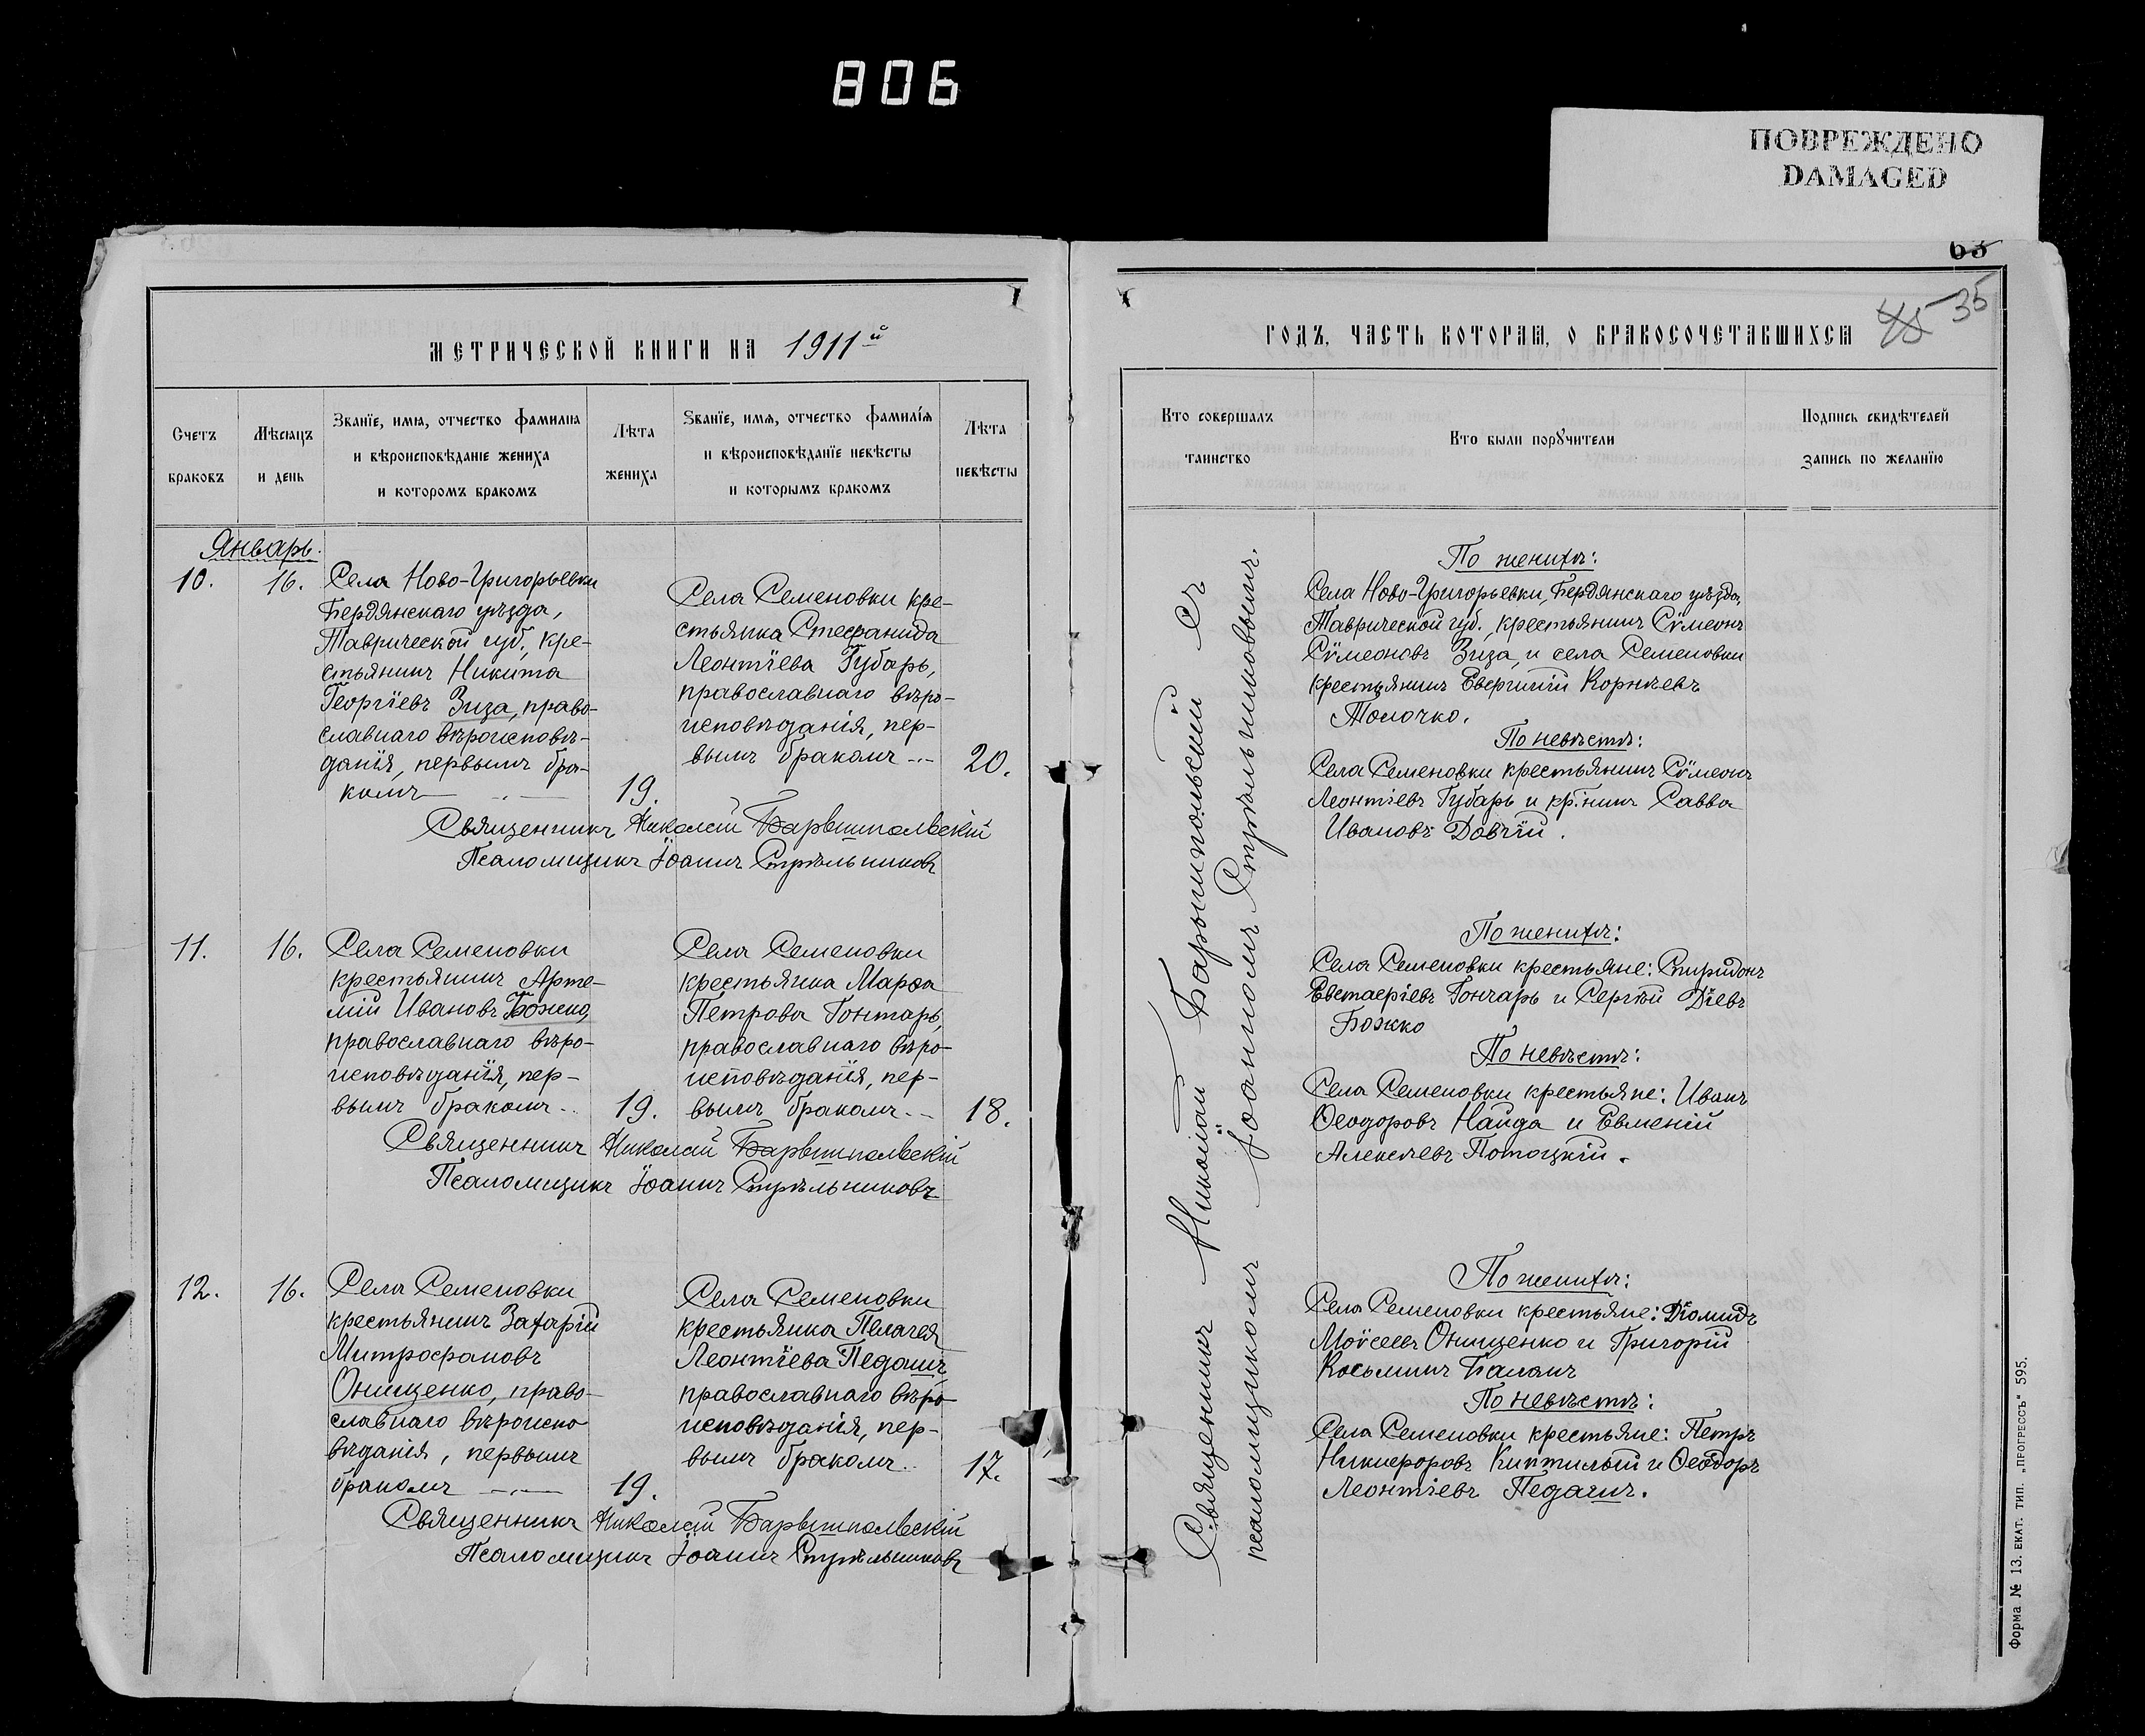 806
ПОВРЕЖДЕНО
DAMAGED
63
МЕТРИЧЕСКОЙ КНИГИ НА 1911й
Счетъ браковъ
Мѣсяцъ и день
Званїе, имя, отчество фамилиа
и вѣроисповѣданіе жениха
и которомъ бракомъ
Лѣта жениха
Званїе, имѧ, отчество фамилїѧ
и вѣроисповѣданїе невѣсты
и которымъ бракомъ
Лѣта невѣсты
Январь.
10.
16.
Села Ново-Григорьевки
Бердянскаго уѣзда,
Таврической губ., кре-
стьянинъ Никита
Георгіевъ Зиза, право-
славнаго вѣроисповѣ-
данія, первымъ бра-
комъ
19.
Села Семеновки кре-
стьянка Стефанида
Леонтіева Губарь,
православнаго вѣро-
исповѣданія, пер-
вымъ бракомъ
20.
Священникъ Николай Барышпольскій
Псаломщикъ Іоаннъ Стрѣльниковъ
11.
16.
Села Семеновки
крестьянинъ Арте-
мій Ивановъ Божко,
православнаго вѣро-
исповѣданія, пер-
вымъ бракомъ
19.
Села Семеновки
крестьянка Марѳа
Петрова Гонтарь,
православнаго вѣро-
исповѣданія, пер-
вымъ бракомъ
18.
Священникъ Николай Барышпольскій
Псаломщикъ Іоаннъ Стрѣльниковъ
12.
16.
Села Семеновки
крестьянинъ Захарій
Митрофановъ
Онищенко, право-
славнаго вѣроиспо
вѣданія, первымъ
бракомъ
19.
Села Семеновки
крестьянка Пелагея
Леонтіева Педашъ
православнаго вѣро
исповѣданія, пер-
вымъ бракомъ
17.
Священникъ Николай Барышпольскій
Псаломщикъ Іоаннъ Стрѣльниковъ
ГОДЪ, ЧАСТЬ КОТОРАЯ, О БРАКОСОЧЕТАВШИХСЯ
45 35
Кто совершалъ таинство
Кто были порꙋчители
Подпись свидѣтелей
запись по желанїю
Священникъ Николай Барышпольскій съ
псаломщикомъ Іоанномъ Стрѣльниковымъ.
По женихѣ:
Села Ново-Григорьевки, Бердянскаго уѣзда,
Таврической губ., крестьянинъ Сѵмеонъ
Сѵмеоновъ Зиза, и села Семеновки
крестьянинъ Евергитій Корнѣевъ
Толочко.
По невѣстѣ:
Села Семеновки крестьянинъ Сѵмеонъ
Леонтіевъ Губарь и кр.нинъ Савва
Ивановъ Довгій.
По женихѣ:
Села Семеновки крестьяне: Спиридонъ
Евстаѳіевъ Гончарь и Сергѣй Діевъ
Божко
По невѣстѣ:
Села Семеновки крестьяне: Иванъ
Ѳеодоровъ Найда и Евменій
Алексѣевъ Потоцкій.
По женихѣ:
Села Семеновки крестьяне: Діомидъ
Моѵсеевъ Онищенко и Григорій
Косьминъ Баланъ
По невѣстѣ:
Села Семеновки крестьяне: Петръ
Никифоровъ и Ѳеодоръ
Леонтіевъ Педашъ.
Форма № 13. ЕКАТ. ТИП. „ПРОГРЕССЪ" 595.